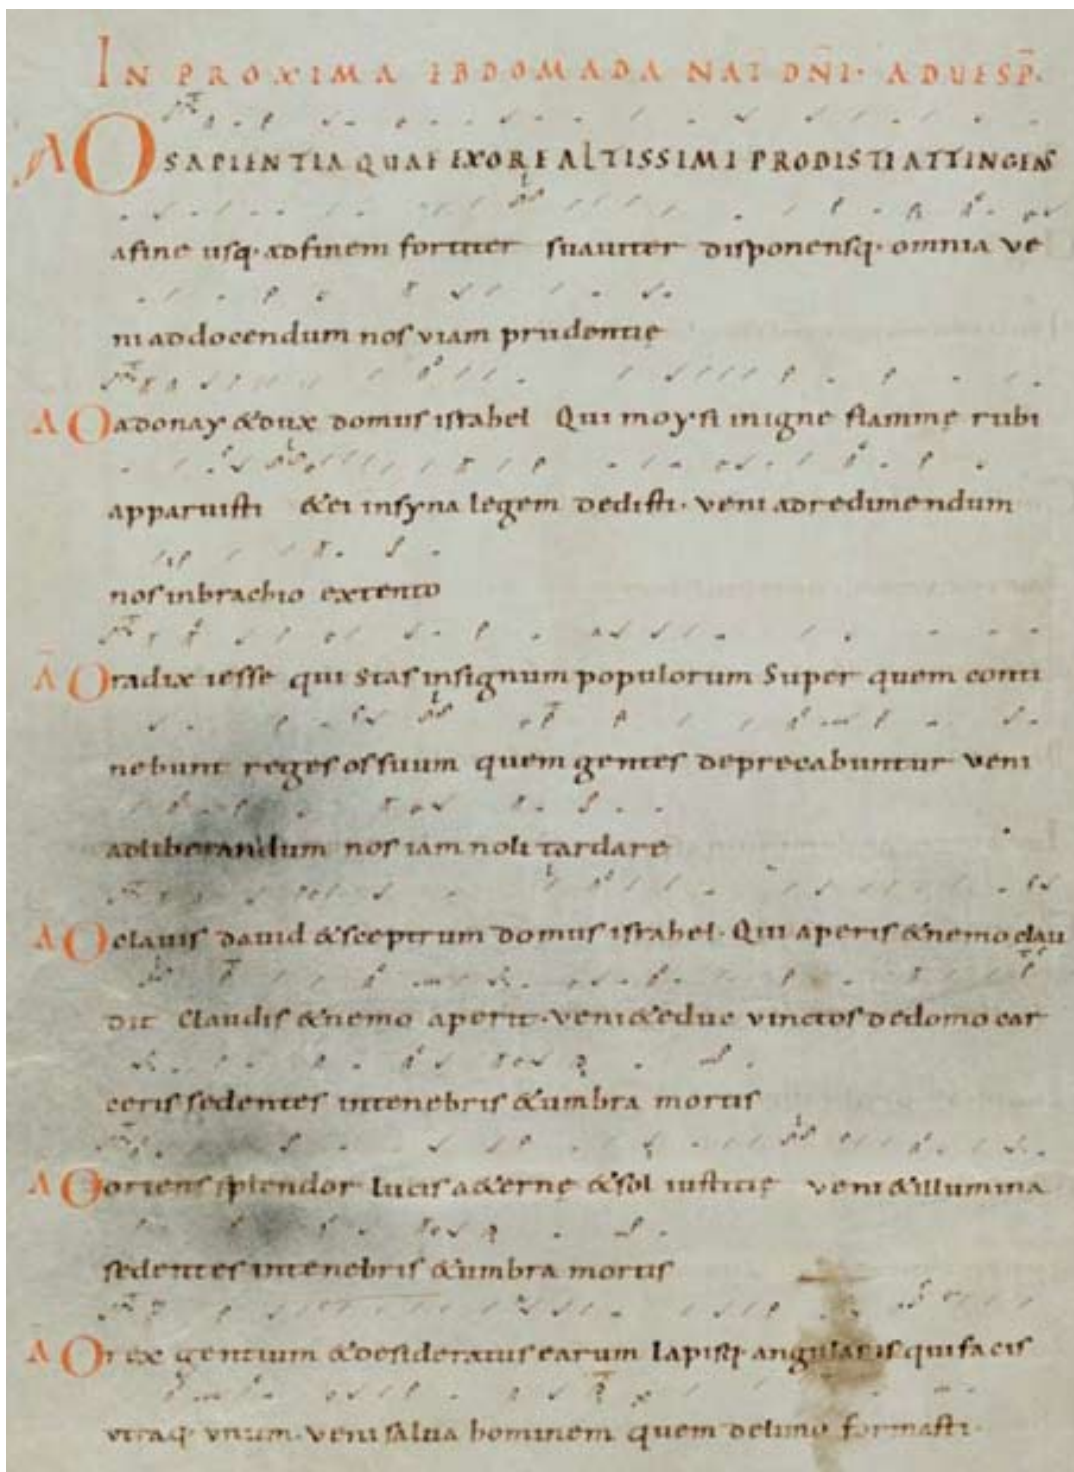 IN PROXIMA EBDOMADA NAT̄ DN̄I· AD UESP̄·
A O SAPIENTIA QUAE EX ORE ALTISSIMI PRODISTI ATTINGENS
afine usq· adfinem fortiter suauiter disponensq· omnia ve
ni addocendum nos viam prudentię
Ā O adonay &dux domus israhel Qui moysi inigne flammę rubi
apparuisti &ei insyna legem dedisti· veni adredimendum
nos inbrachio extento
Ā O radix iesse qui Stas insignum populorum Super quem conti
nebunt reges os suum quem gentes deprecabuntur veni
adliberandum nos iam noli tardare
Ā O clauis dauid &sceptrum domus israhel· Qui aperis &nemo clau
dit Claudis &nemo aperit· veni &educ vinctos dedomo car
ceris sedentes intenebris &umbra mortis
A O oriens splendor lucis a&ernę &sol iusticię veni &illumina
sedentes intenebris &umbra mortis
A O rex gentium &desideratus earum lapisq· angularis qui facis
utraq· unum· veni salua hominem quem delimo formasti·